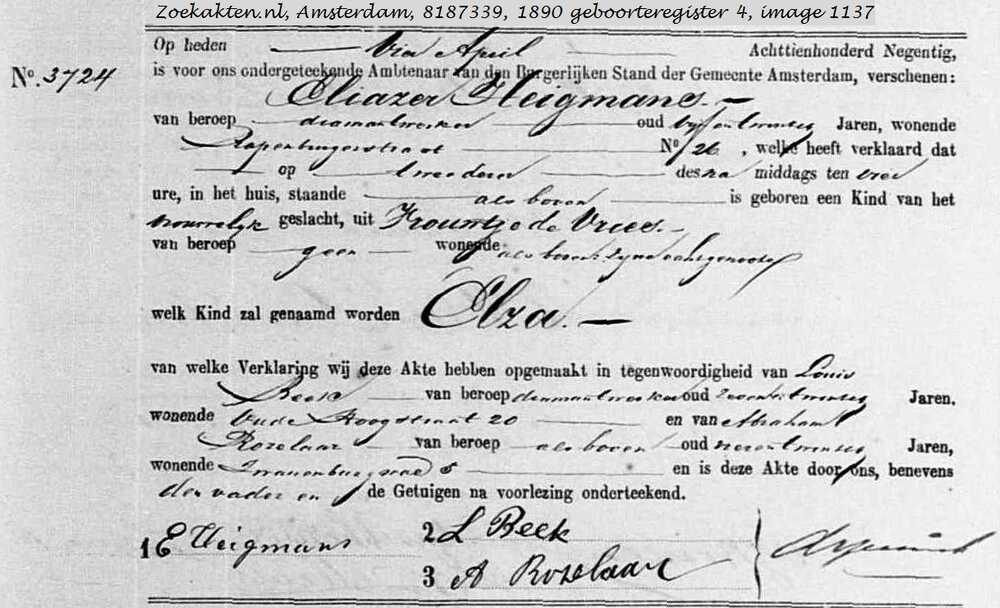 Zoekakten.nl, Amsterdam, 8187339, 1890 geboorteregister 4, image 1137
Op heden Vier April Achttienhonderd Negentig,
No. 3724
is voor ons ondergeteekende Ambtenaar van den Burgerlijken Stand der Gemeente Amsterdam, verschenen:
Eliazer Heigmans.
van beroep diamantwerker oud vijfentwintig Jaren, wonende
Rapenburgerstraat No 26, welke heeft verklaard dat
op tweeden des na middags ten vier
ure, in het huis, staande als boven is geboren een Kind van het
vrouwelijk geslacht, uit Vrouwtje de Vries.
van beroep geen wonende als boven zijne echtgenoote
welk Kind zal genaamd worden Elza.
van welke Verklaring wij deze Akte hebben opgemaakt in tegenwoordigheid van Louis
Beek van beroep diamantwerker oud twintig Jaren,
wonende Oude Hoogstraat 20 en van Abraham
Rozelaar van beroep als boven oud Jaren,
wonende Zwanenburgerstraat 5 en is deze Akte door ons, benevens
den vader en de Getuigen na voorlezing onderteekend.
1 E Heigmans
2 L Beek
3 A Rozelaar